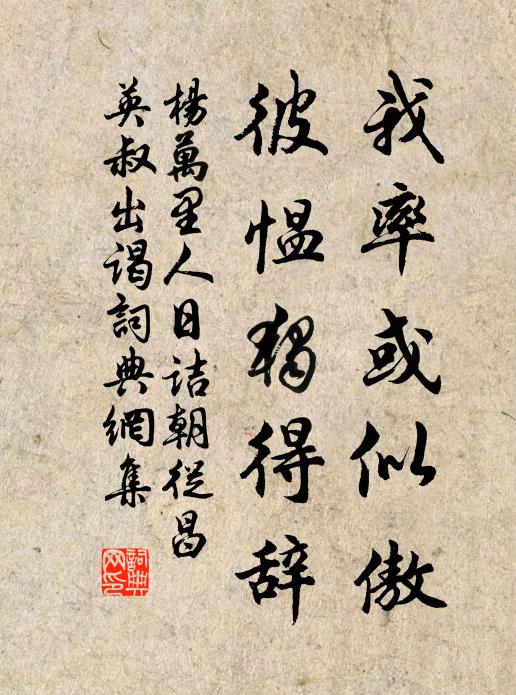 我率或似傲
彼愠独得辞
楊萬里人日诘朝從昌
英叔出谒詞典網集
詞典網印